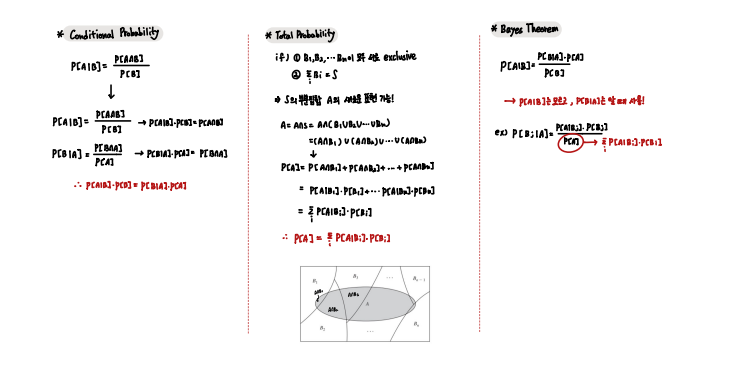 * Conditional Probability
P[A|B] = P[A∩B] / P[B]
↓
P[A|B] = P[A∩B] / P[B] → P[A|B]·P[B] = P[A∩B]
P[B|A] = P[B∩A] / P[A] → P[B|A]·P[A] = P[B∩A]
∴ P[A|B]·P[B] = P[B|A]·P[A]
* Total Probability
if) ① B₁, B₂, ··· Bₙ이 모두 서로 exclusive
② Σᵢ Bᵢ = S
⇒ S의 부분집합 A의 새로운 표현 가능!
A = A∩S = A∩(B₁∪B₂∪···∪Bₙ)
= (A∩B₁)∪(A∩B₂)∪···∪(A∩Bₙ)
↓
P[A] = P[A∩B₁] + P[A∩B₂] + ··· + P[A∩Bₙ]
= P[A|B₁]·P[B₁] + ··· P[A|Bₙ]·P[Bₙ]
= Σᵢ P[A|Bᵢ]·P[Bᵢ]
∴ P[A] = Σᵢ P[A|Bᵢ]·P[Bᵢ]
B₁ B₃ ··· Bₙ₋₁
A∩B₁ A∩B₃
A
A∩B₂
B₂ ··· Bₙ
* Bayes Theorem
P[A|B] = P[B|A]·P[A] / P[B]
→ P[A|B]는 모르고, P[B|A]는 알 때 사용!
ex) P[Bⱼ|A] = P[A|Bⱼ]·P[Bⱼ] / P[A] → Σᵢ P[A|Bᵢ]·P[Bᵢ]